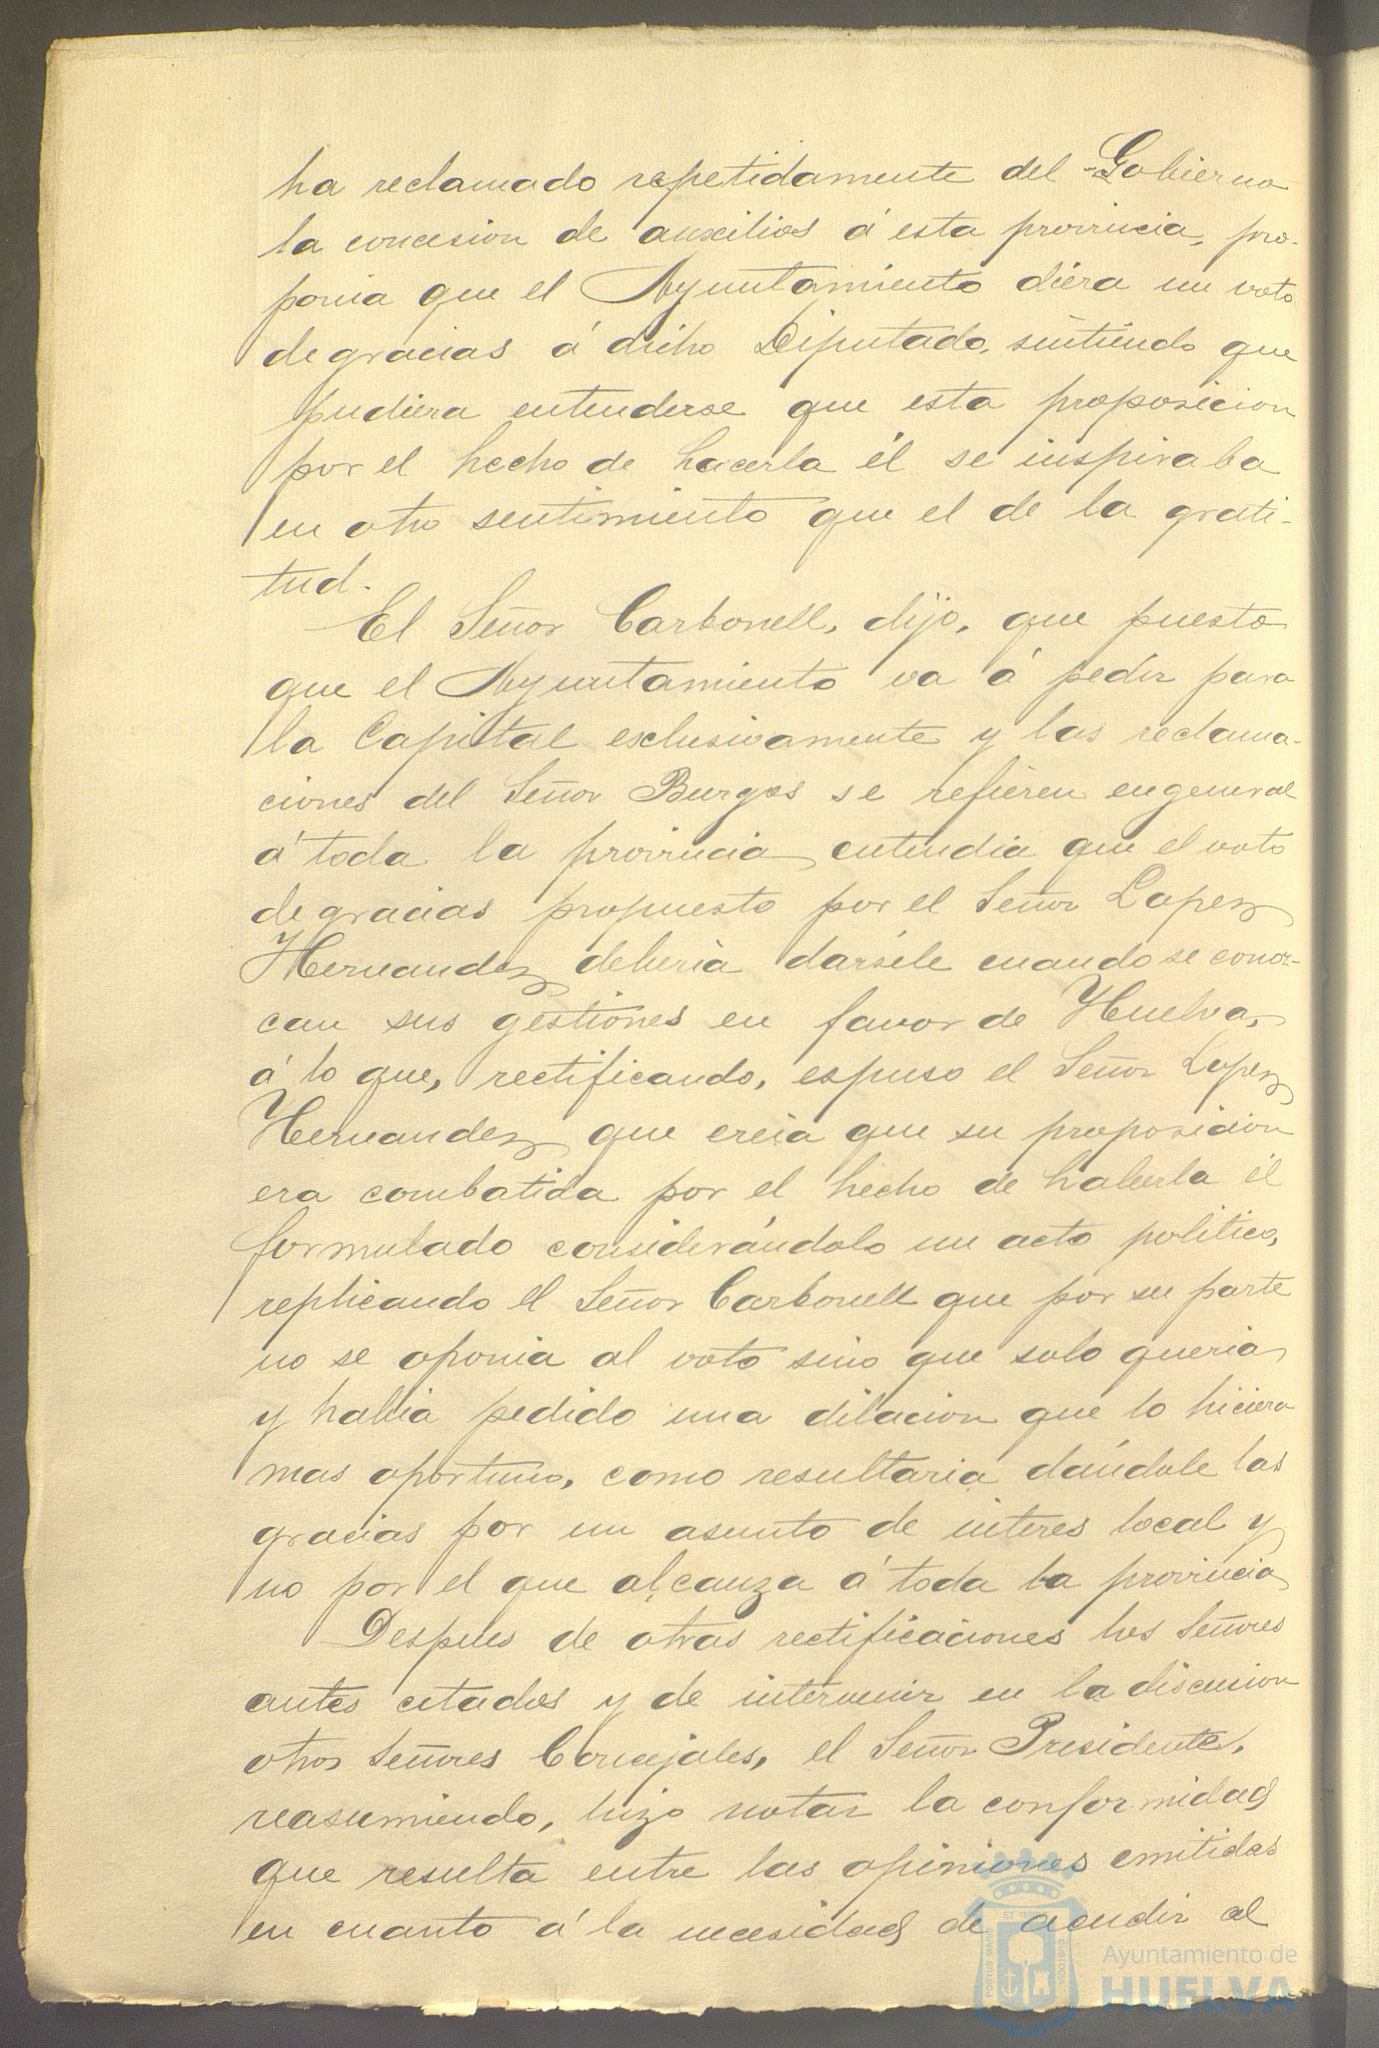 ha reclamado repetidamente del Gobierno
la concesion de auxilios á esta provincia, pro-
ponia que el Ayuntamiento diera un voto
de gracias á dicho Diputado, sintiendo que
pudiera entenderse que esta proposicion
por el hecho de hacerla él se inspiraba
en otro sentimiento que el de la grati-
tud.
El Señor Carbonell, dijo, que puesto
que el Ayuntamiento va á pedir para
la Capital esclusivamente y las reclama-
ciones del Señor Burgos se refieren en general
á toda la provincia, entendia que el voto
de gracias propuesto por el Señor Lopez
Hernandez deberia dársele cuando se conoz-
can sus gestiones en favor de Huelva,
á lo que, rectificando, espuso el Señor Lopez
Hernandez que creia que su proposicion
era combatida por el hecho de haberla él
formulado considerándolo un acto politico,
replicando el Señor Carbonell que por su parte
no se oponia al voto sino que solo queria
y habia pedido una dilacion que lo hiciera
mas oportuno, como resultaria dándole las
gracias por un asunto de interes local y
no por el que alcanza á toda la provincia
Despues de otras rectificaciones los Señores
antes citados y de intervenir en la discusion
otros Señores Concejales, el Señor Presidente,
reasumiendo, hizo notar la conformidad
que resulta entre las opiniones emitidas
en cuanto á la necesidad de acudir al
PORTUS MARIS ET TERRAE CUSTODIA
Ayuntamiento de
HUELVA